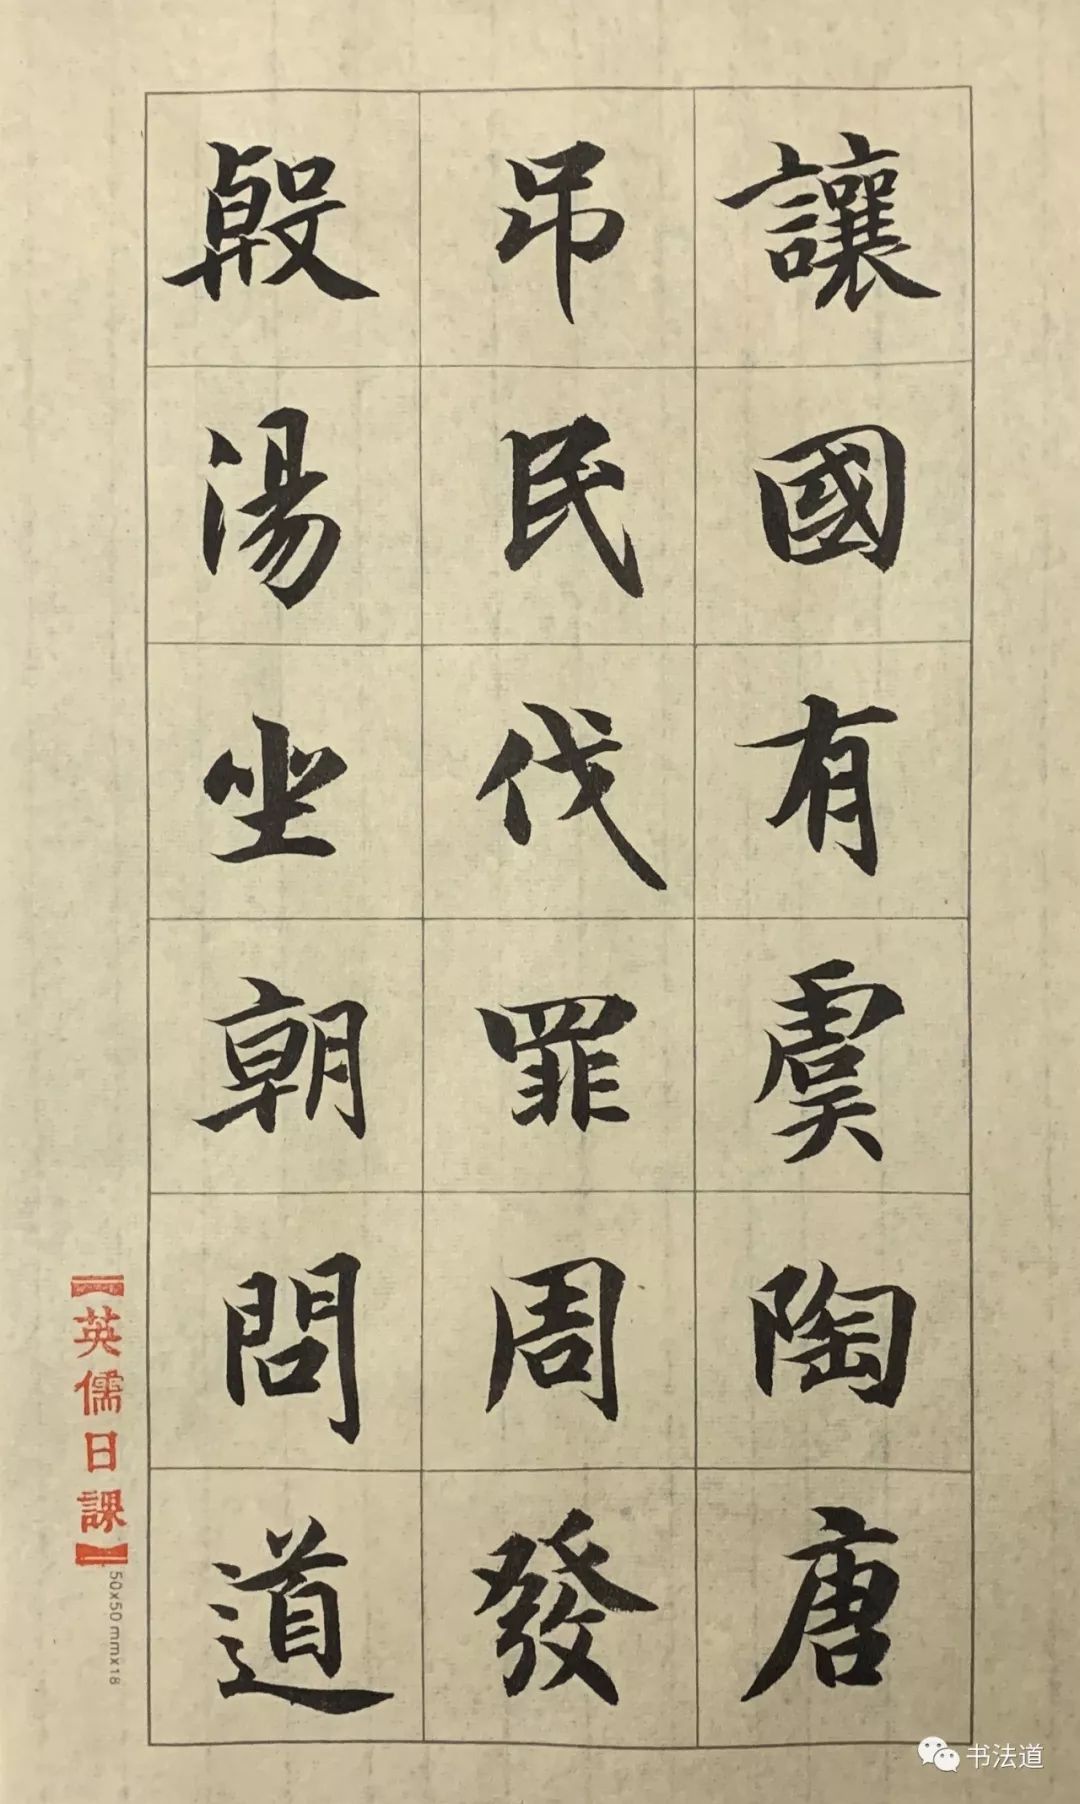 讓國有虞陶唐
弔民伐罪周發
殷湯坐朝問道
【英儒日課】
50x50mmx18
书法道